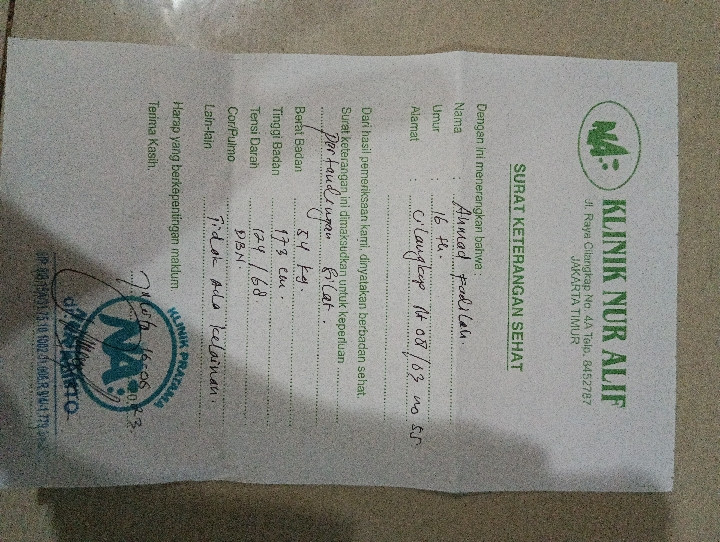 NA:
KLINIK NUR ALIF
Jl. Raya Cilangkap No. 4A Telp. 8452787
JAKARTA TIMUR
SURAT KETERANGAN SEHAT
Dengan ini menerangkan bahwa :
Nama : Ahmad Fadilah.
Umur : 16 th.
Alamat : Cilangkap Rt 08/03 no 55
Dari hasil pemeriksaan kami, dinyatakan berbadan sehat.
Surat keterangan ini dimaksudkan untuk keperluan
Pertandingan Silat.
Berat Badan 54 kg.
Tinggi Badan 173 cm.
Tensi Darah 124/68
Cor/Pulmo DBN.
Lain-lain Tidak ada kelainan.
Harap yang berkepentingan maklum
Terima Kasih.
KLINIK PRATAMA
NA: